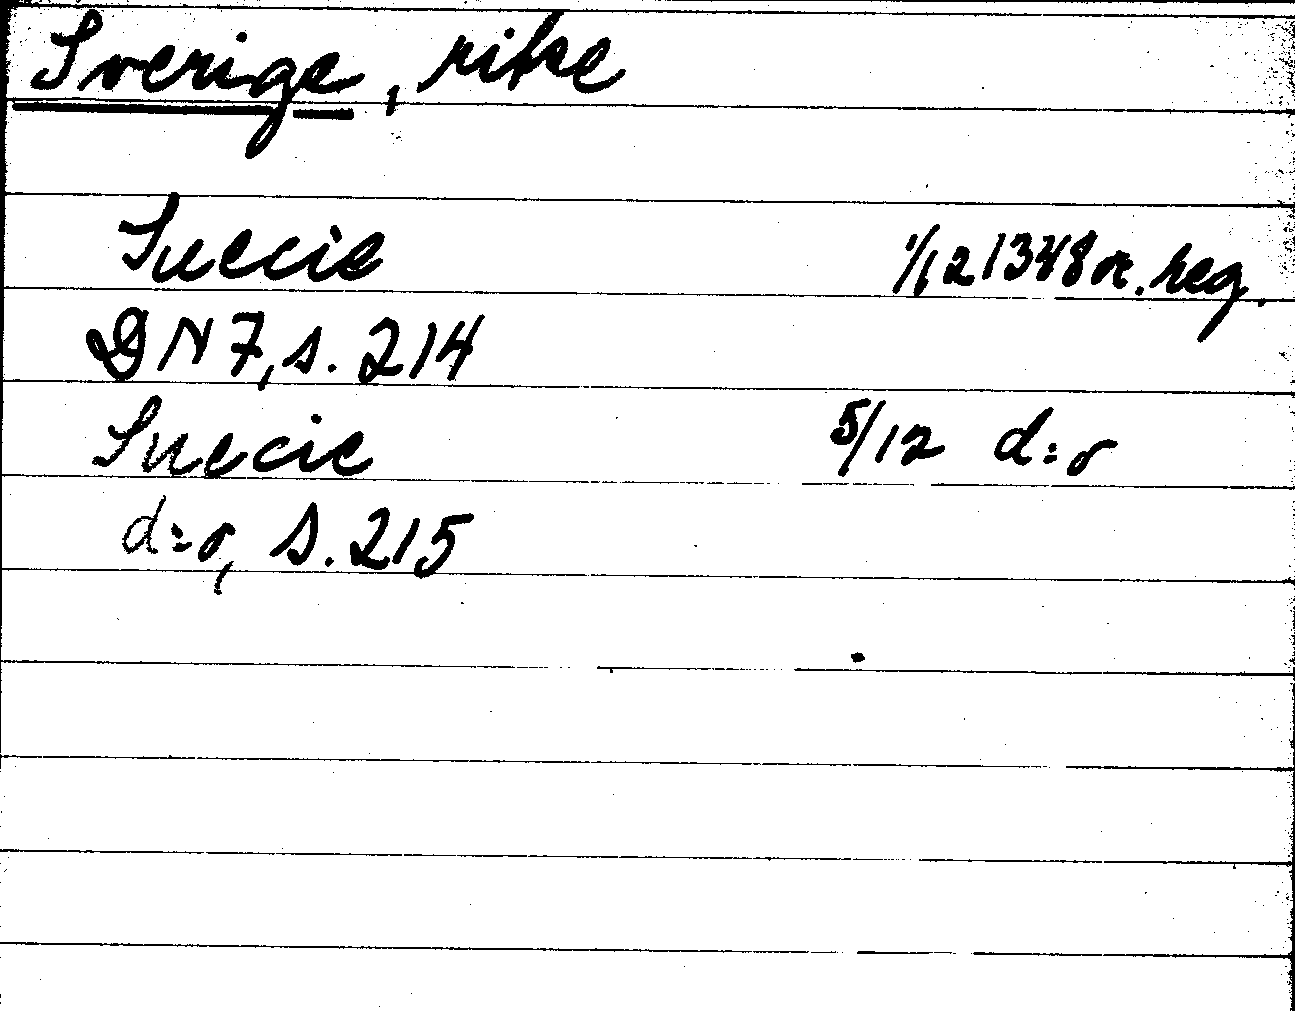 Sverige, rike
Suecie 1/12 1348 or. reg.
DN 7, s. 214
Suecie 5/12 d:o
d:o, s. 215